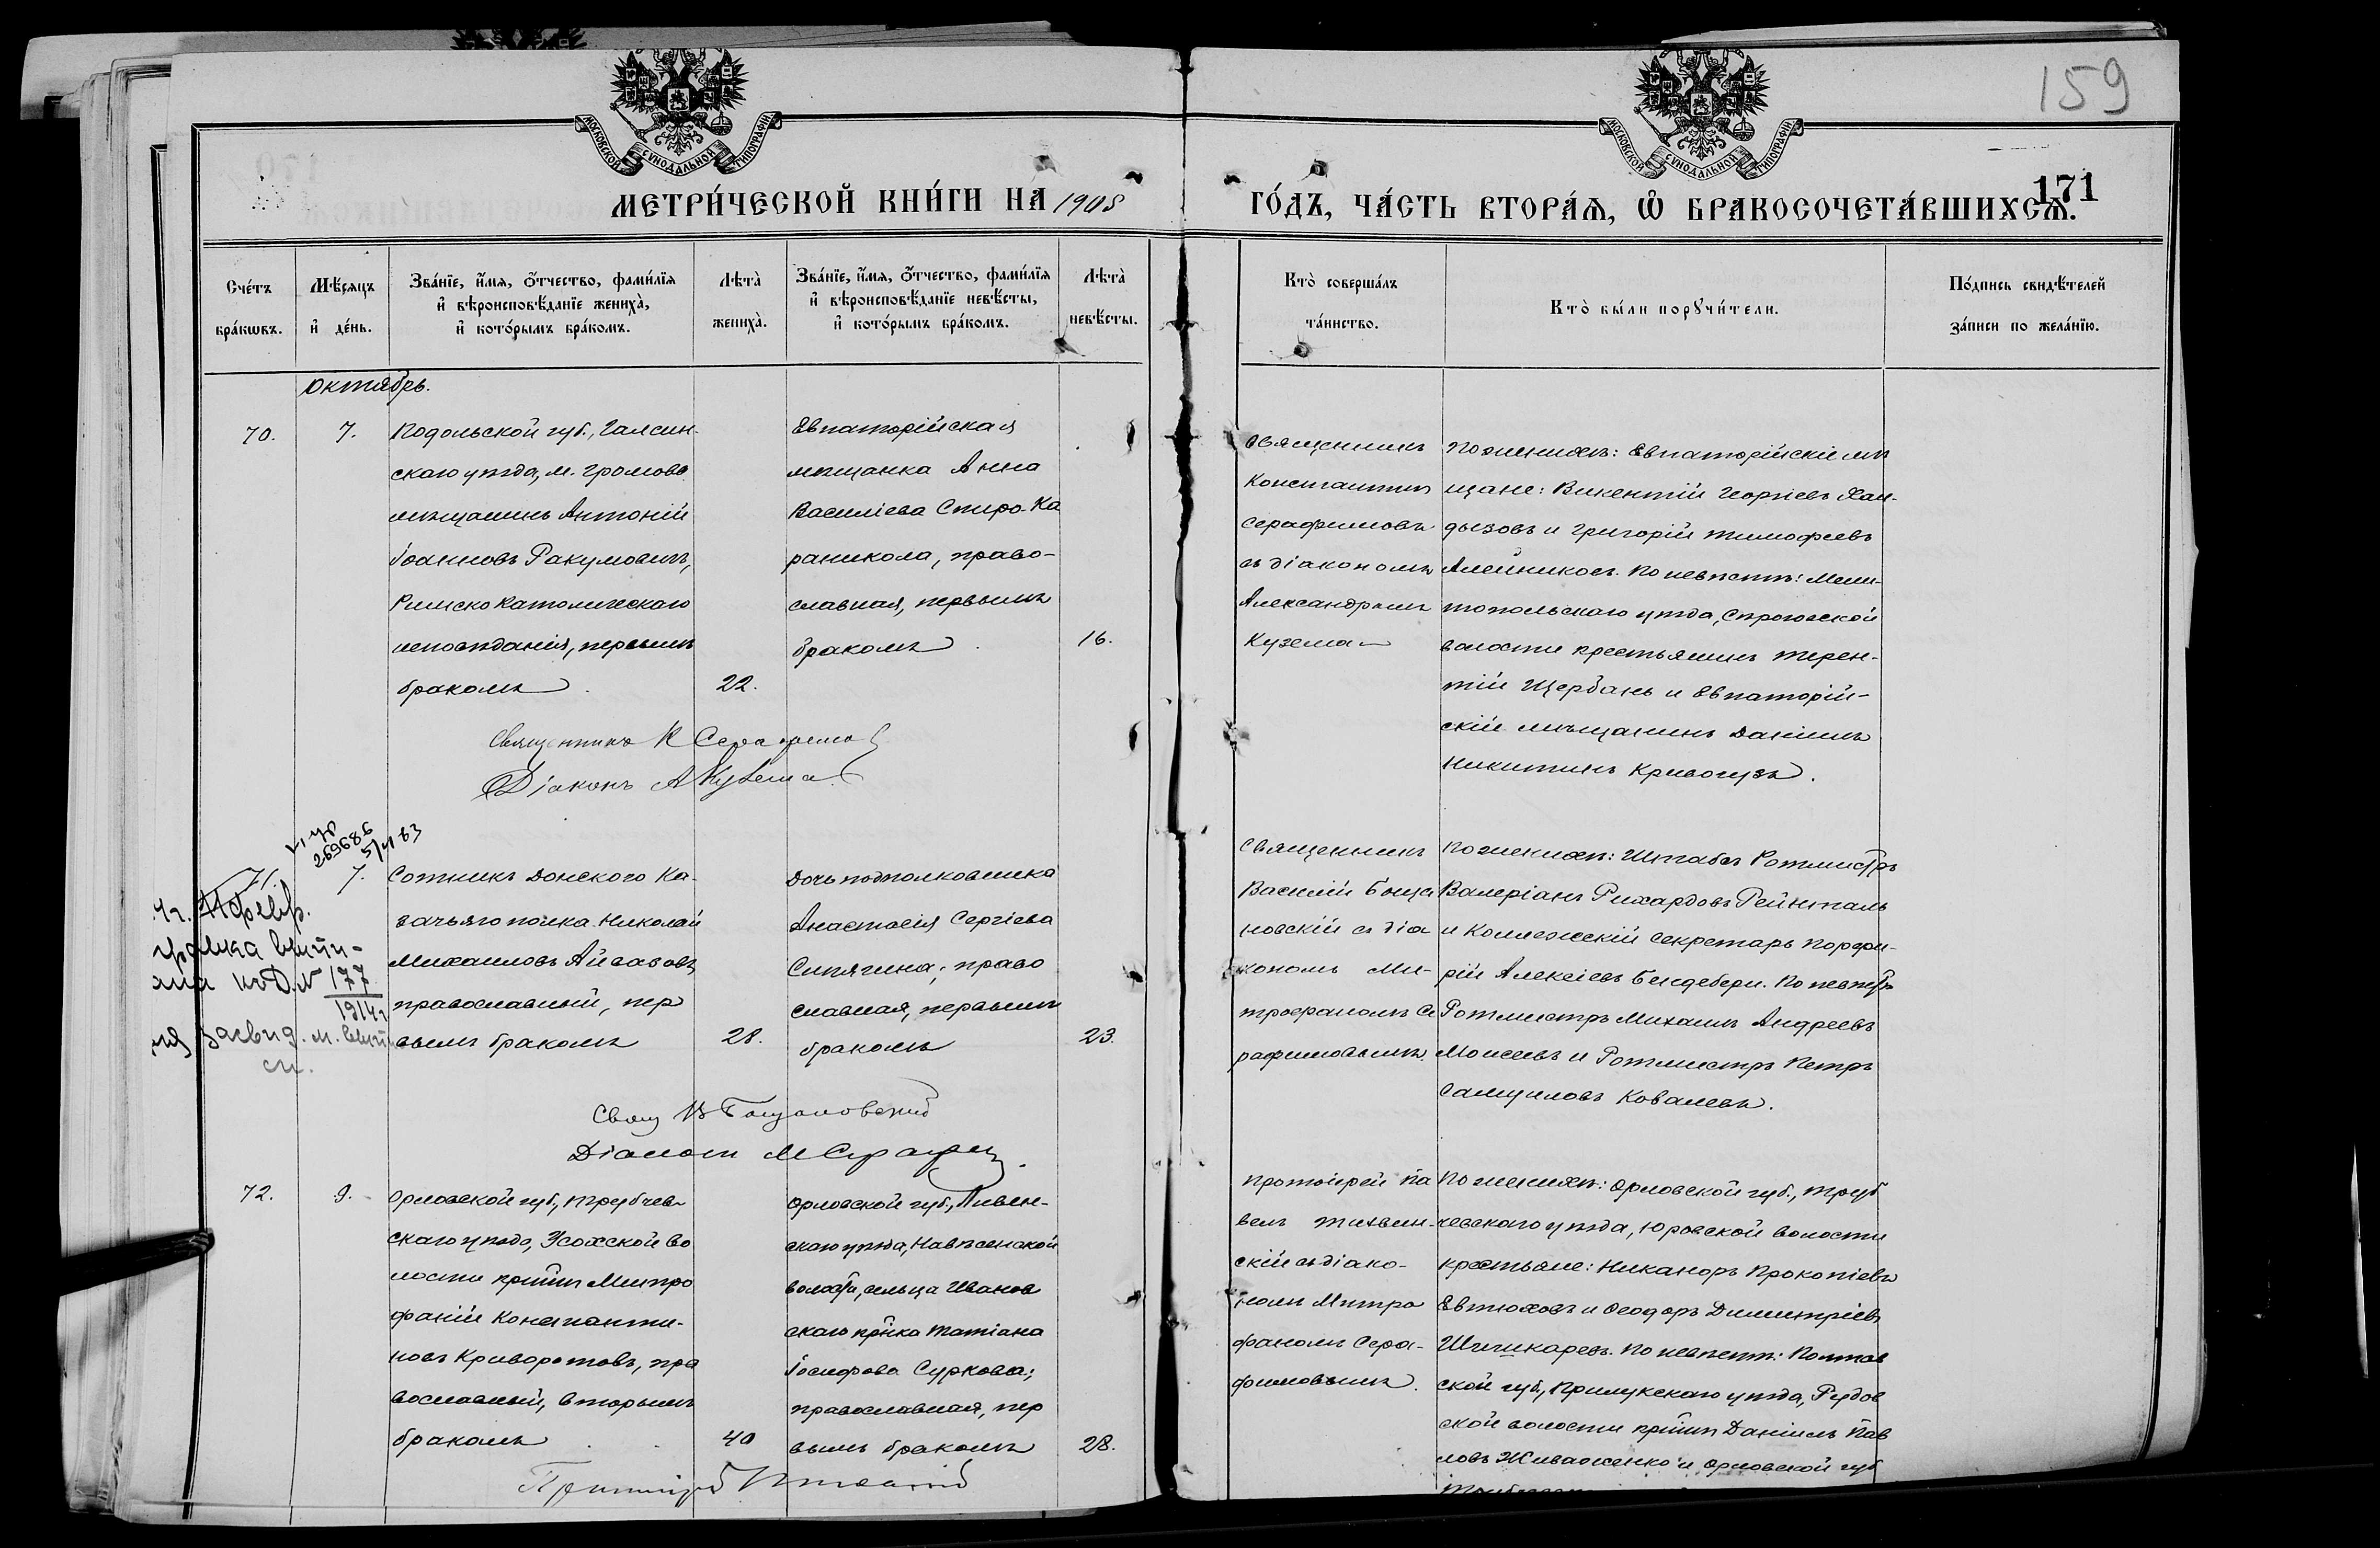 159
171
МОСКОВСКОЙ СѴНОДАЛЬНОЙ ТИПОГРАФІИ
МОСКОВСКОЙ СѴНОДАЛЬНОЙ ТИПОГРАФІИ
МЕТРИ́ЧЕСКОЙ КНИ́ГИ НА 1908
ГО́ДЪ, ЧА́СТЬ ВТОРА́Ѧ, Ѽ БРАКОСОЧЕТА́ВШИХСѦ.
Сче́тъ
бра́кѡвъ.
Мѣ́сяцъ
и҆ де́нь.
Зва́нїе, и҆́мя, ѻ҆́тчество, фами́лїя
и҆ вѣроисповѣ́данїе жениха̀,
и҆ кото́рымъ бра́комъ.
Лѣта̀
жениха̀.
Зва́нїе, и҆́мя, ѻ҆́тчество, фами́лїя
и҆ вѣроисповѣ́данїе невѣ́сты,
и҆ кото́рымъ бра́комъ.
Лѣта̀
невѣ́сты.
Кто̀ соверша́лъ
та́инство.
Кто̀ бы́ли порꙋчи́тели.
По́дпись свидѣ́телей
за́писи по жела́нїю.
Октябрь.
70.
7.
Подольской губ., Гайсин-
скаго уѣзда, м.
мѣщанинъ Антоній
Іоанновъ Ракумовичъ,
Римско Католическаго
исповѣданія, первымъ
бракомъ.
22.
Евпаторійская
мѣщанка Анна
Василіева Спиро-Ка
раникола, право-
славная, первымъ
бракомъ.
16.
Священникъ
Константинъ
Серафимовъ
съ діакономъ
Александромъ
Кузема
По женихѣ: Евпаторійскіе мѣ
щане: Викентій Георгіевъ
и Григорій Тимофеевъ
Алейниковъ. По невѣстѣ: Мели-
топольскаго уѣзда,
волости крестьянинъ Терен-
тій Щербань и Евпаторій-
скій мѣщанинъ Даніилъ
Никитинъ
Священникъ К Серафимов
Діаконъ А Кузема
269686
71.
7.
177
1914г
Сотникъ Донского Ка-
зачьяго полка Николай
Михаиловъ Айвазовъ,
православный, пер
вымъ бракомъ
28.
Дочь подполковника
Анастасія Сергіева
Сипягина, право
славная, первымъ
бракомъ
23.
Священникъ
Василій Боща
новскій съ діа
кономъ Ми-
трофаномъ Се
рафимовымъ.
По женихѣ: Штабсъ Ротмистръ
Валеріанъ Рихардовъ Рейнталь
и Коллежскій Секретарь Порфи-
рій Алексіевъ Бендебери. По невѣстѣ
Ротмистръ Михаилъ Андреевъ
Моисеевъ и Ротмистръ Петръ
Самуиловъ Ковалевъ.
Свящ В Бощановскій
Діаконъ М Серафим
72.
9.
Орловской губ., Трубчев-
скаго уѣзда, Усохской во
лости кр-нинъ Митро
фаній Константи-
новъ Криворотовъ, пра
вославный, вторымъ
бракомъ.
40
Орловской губ., Ливен-
скаго уѣзда, Навѣсенской
волости, сельца Иванов
скаго кр-нка Татіана
Іосифова Суркова;
православная, пер
вымъ бракомъ
28.
Протоіерей Па
велъ Тихвин-
скій съ діако-
номъ Митро
фаномъ Сера-
фимовымъ.
По женихѣ: Орловской губ., Труб
чевскаго уѣзда, Юровской волости
крестьяне: Никаноръ Прокопіевъ
Евтюховъ и Ѳеодоръ Димитріевъ
Шишкаревъ. По невѣстѣ: Полтав
ской губ., Прилукскаго уѣзда, Рудов
ской волости кр-нинъ Даніилъ Пав
ловъ и Орловской губ